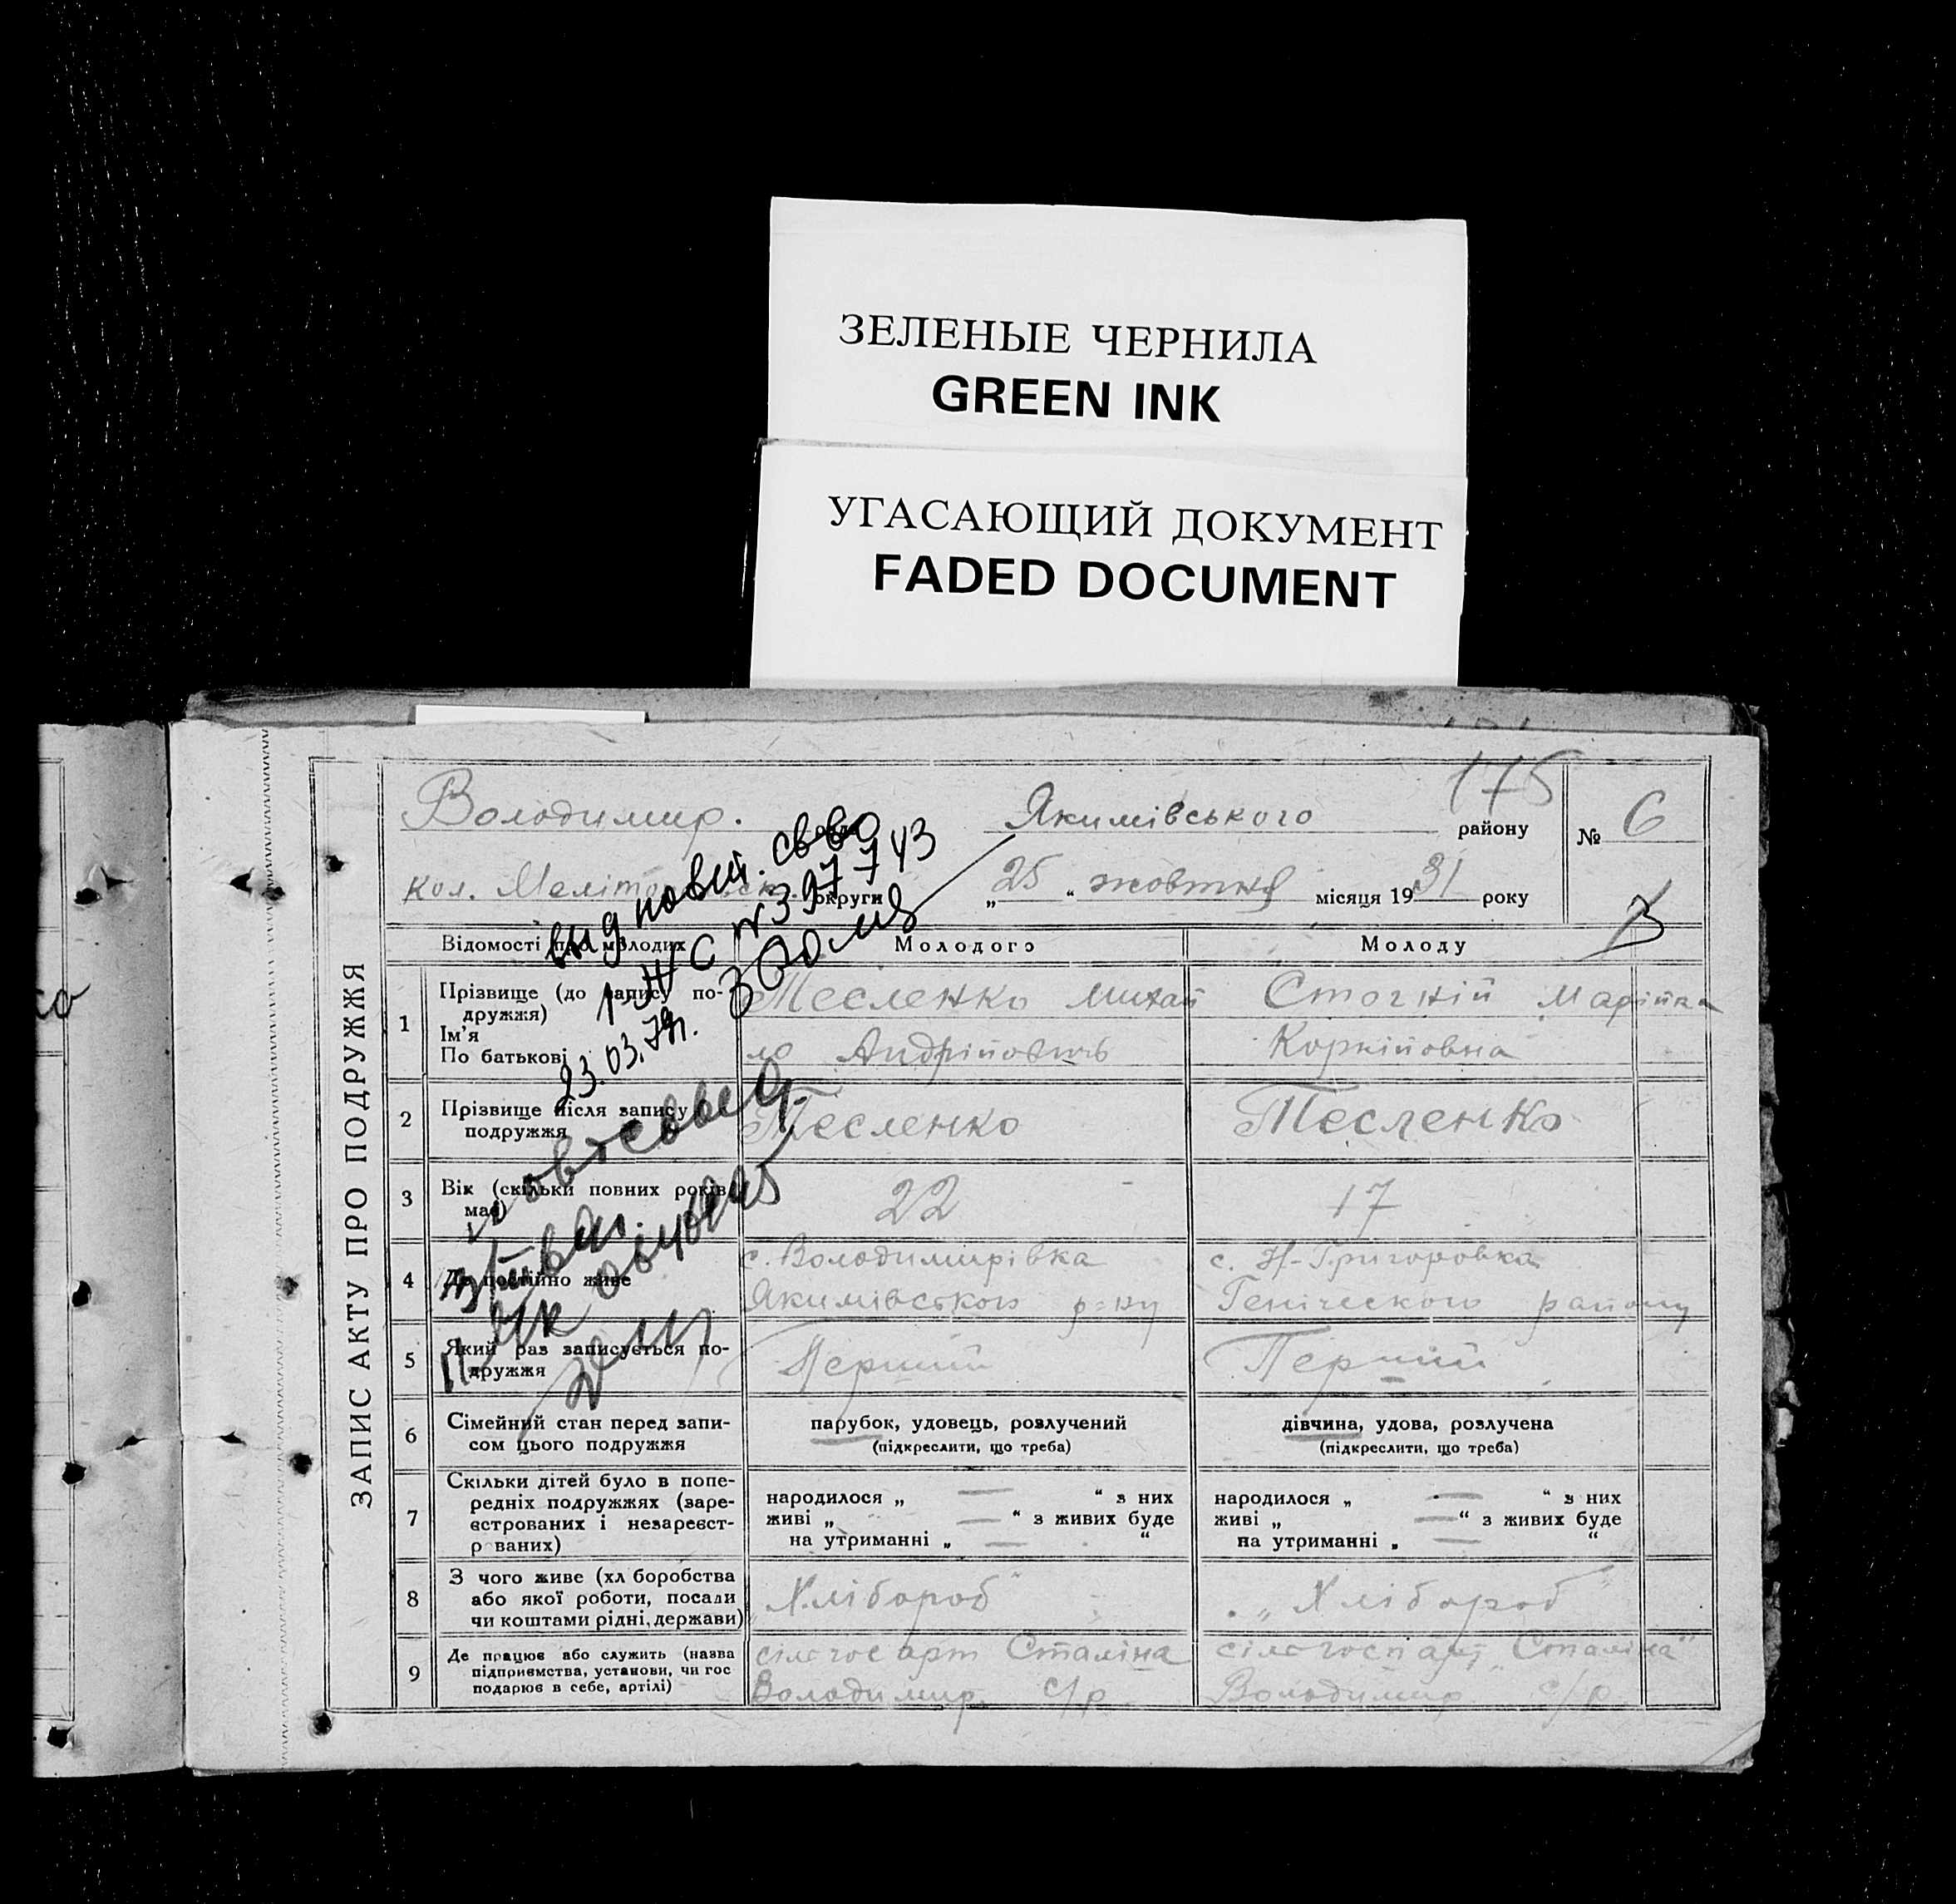 ЗЕЛЕНЫЕ ЧЕРНИЛА
GREEN INK
УГАСАЮЩИЙ ДОКУМЕНТ
FADED DOCUMENT
175
Володимир. Якимівського району № 6
кол. округи „25“ жовтня місяця 1931 року
ЗАПИС АКТУ ПРО ПОДРУЖЖЯ
Відомості про молодих Молодого Молоду
1 Прізвище (до запису по-
дружжя)
Ім'я
По батькові
Тесленко Михай
ло Андрійович
Стогній Марійка
Корнійовна
2 Прізвище після запису
подружжя
Тесленко
Тесленко
3 Вік (скільки повних років
має)
22
17
4 Де постійно живе
с. Володимирівка
Якимівського р-ну
с. Н-Григоровка
Геніческого району
5 Який раз записується по-
дружжя
Перший
Перший
6 Сімейний стан перед запи-
сом цього подружжя
парубок, удовець, розлучений
(підкреслити, що треба)
дівчина, удова, розлучена
(підкреслити, що треба)
7 Скільки дітей було в попе-
редніх подружжях (заре-
єстрованих і незареєст-
р ваних)
народилося „ — “ з них
живі „ — “ з живих буде
на утриманні „ — “
народилося „ — “ з них
живі „ — “ з живих буде
на утриманні „ — “
8 З чого живе (хл боробства
або якої роботи, посади
чи коштами рідні, держави)
„Хлібороб“
„Хлібороб“
9 Де працює або служить (назва
підприємства, установи, чи гос
подарює в себе, артілі)
сілсгос арт Сталіна
Володимир. с/р
сілсгосп арт „Сталіна“
Володимир с/р
выд повт. св во
1-ЖС № 397743
23.03.79г.